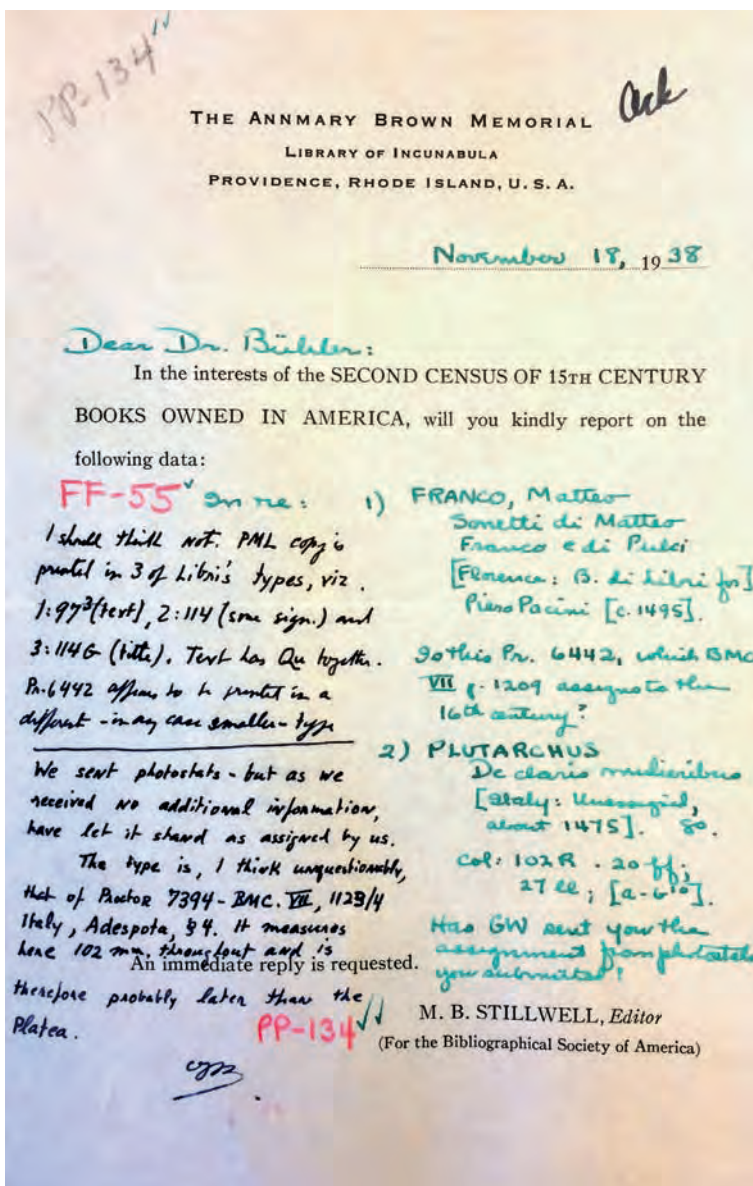 PP-134
Ack
THE ANNMARY BROWN MEMORIAL
LIBRARY OF INCUNABULA
PROVIDENCE, RHODE ISLAND, U. S. A.
November 18, 1938
Dear Dr. Bühler:
In the interests of the SECOND CENSUS OF 15TH CENTURY
BOOKS OWNED IN AMERICA, will you kindly report on the
following data:
FF-55 In re:
I should think not. PML copy is
printed in 3 of Libri's types, viz.
1:97³ (text), 2:114 (some sign.) and
3:114G (title). Text has Qu together.
Pr. 6442 appears to be printed in a
different - in any case smaller - type
We sent photostats - but as we
received no additional information,
have let it stand as assigned by us.
The type is, I think unquestionably,
that of Proctor 7394 - BMC. VII, 1123/4
Italy, Adespota, § 4. It measures
here 102 mm. throughout and is
therefore probably later than the
Platea.
1) FRANCO, Matteo
Sonetti di Matteo
Franco e di Pulci
[Florence: B. di Libri for]
Piero Pacini [c. 1495].
Is this Pr. 6442, which BMC
VII p. 1209 assigns to the
16th century?
2) PLUTARCHUS
De claris mulieribus
[Italy: Unassigned,
about 1475]. 8o.
Col: 102R. 20 ff;
27 ll; [a-b¹⁰].
Has GW sent you the
assignment from photostats
you submitted?
An immediate reply is requested.
PP-134
M. B. STILLWELL, Editor
(For the Bibliographical Society of America)